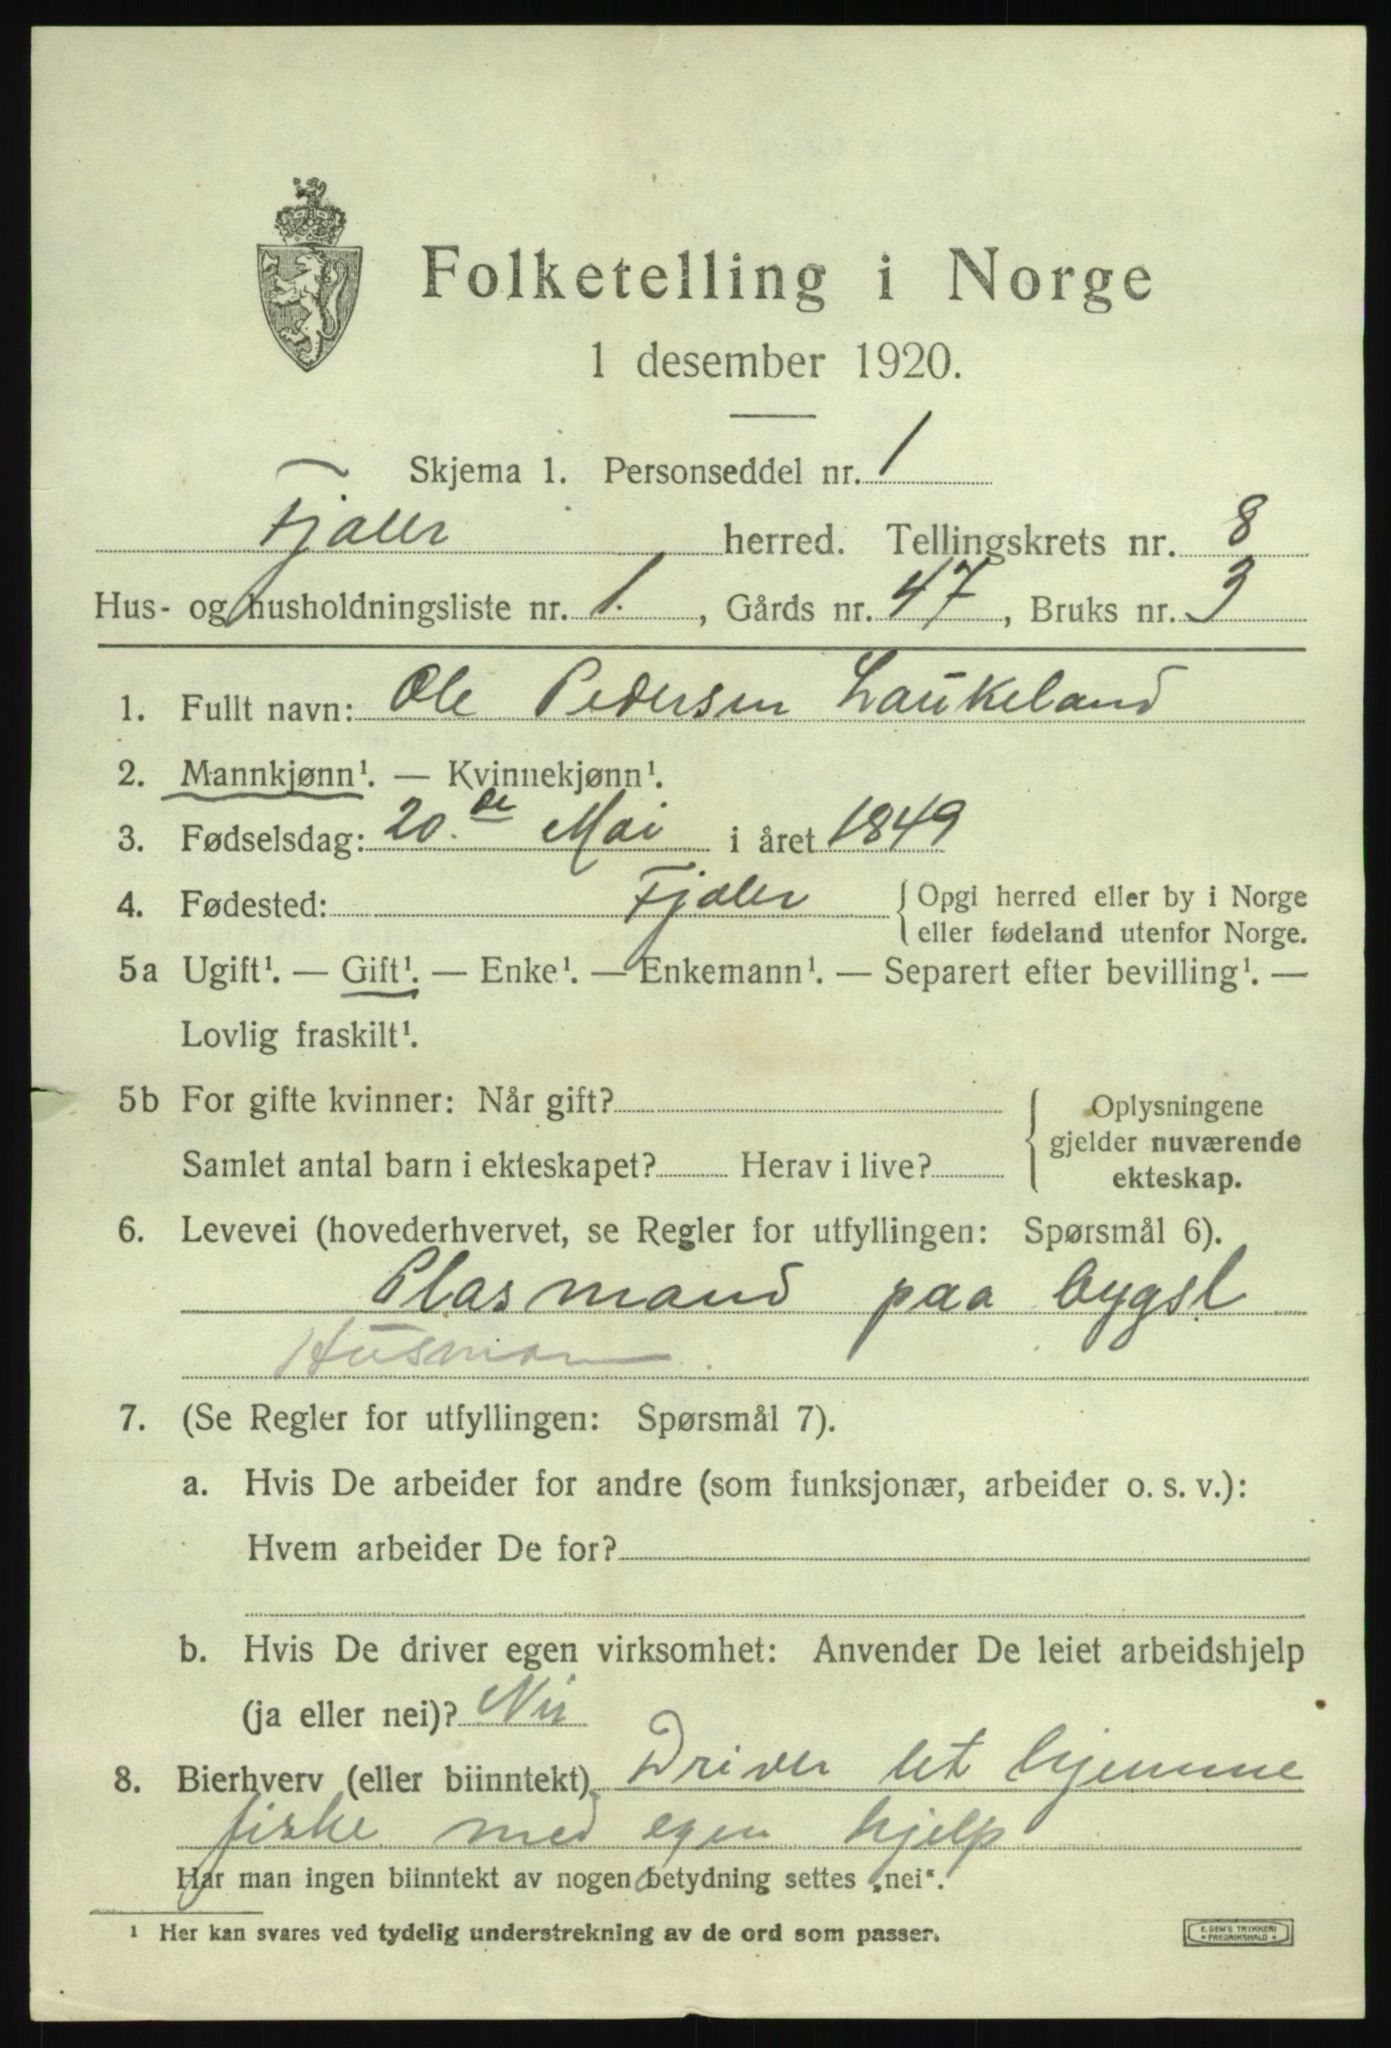 Folketelling i Norge
1 desember 1920.
Skjema 1. Personseddel nr. 1
Fjaler herred. Tellingskrets nr. 8
Hus- og husholdningsliste nr. 1., Gårds nr. 47, Bruks nr. 3
1. Fullt navn: Ole Pedersen Laukeland
2. Mannkjønn¹. — Kvinnekjønn¹.
3. Fødselsdag: 20.de Mai i året 1849
4. Fødested: Fjaler { Opgi herred eller by i Norge
eller fødeland utenfor Norge.
5a Ugift¹. — Gift¹. — Enke¹. — Enkemann¹. — Separert efter bevilling¹. —
Lovlig fraskilt¹.
5b For gifte kvinner: Når gift?
Samlet antal barn i ekteskapet? Herav i live?
{ Oplysningene
gjelder nuværende
ekteskap.
6. Levevei (hovederhvervet, se Regler for utfyllingen: Spørsmål 6).
Plasmand paa bygsl
Husman
7. (Se Regler for utfyllingen: Spørsmål 7).
a. Hvis De arbeider for andre (som funksjonær, arbeider o. s. v.):
Hvem arbeider De for?
b. Hvis De driver egen virksomhet: Anvender De leiet arbeidshjelp
(ja eller nei)? Nei
8. Bierhverv (eller biinntekt) Driver let hjemme
fiske med egen hjelp
Har man ingen biinntekt av nogen betydning settes „nei“.
¹ Her kan svares ved tydelig understrekning av de ord som passer.
E. SEM'S TRYKKERI
* FREDRIKSHALD *